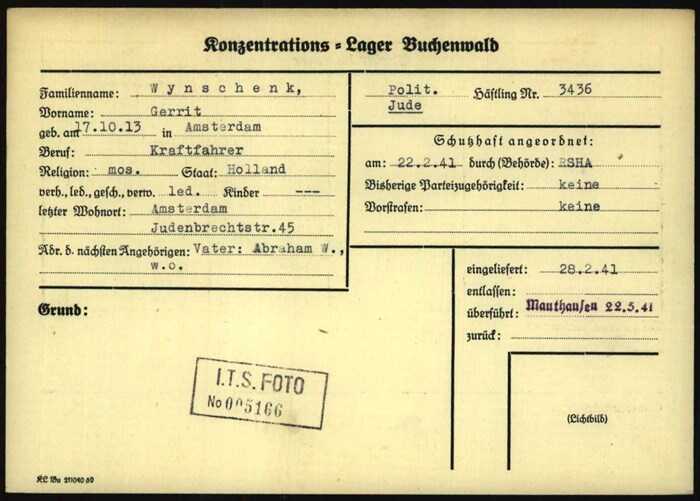 Konzentrations-Lager Buchenwald
Familienname: Wynschenk,
Vorname: Gerrit
geb. am 17.10.13 in Amsterdam
Beruf: Kraftfahrer
Religion: mos. Staat: Holland
verh., led., gesch., verw. led. Kinder ---
letzter Wohnort: Amsterdam
Judenbrechtstr.45
Adr. d. nächsten Angehörigen: Vater: Abraham W.,
w.o.
Grund:
Polit. Häftling Nr. 3436
Jude
Schutzhaft angeordnet:
am: 22.2.41 durch (Behörde): RSHA
Bisherige Parteizugehörigkeit: keine
Vorstrafen: keine
eingeliefert: 28.2.41
entlassen:
überführt: Mauthausen 22.5.41
zurück:
(Lichtbild)
I.T.S. FOTO
No 005166
KL Bu 211040 60